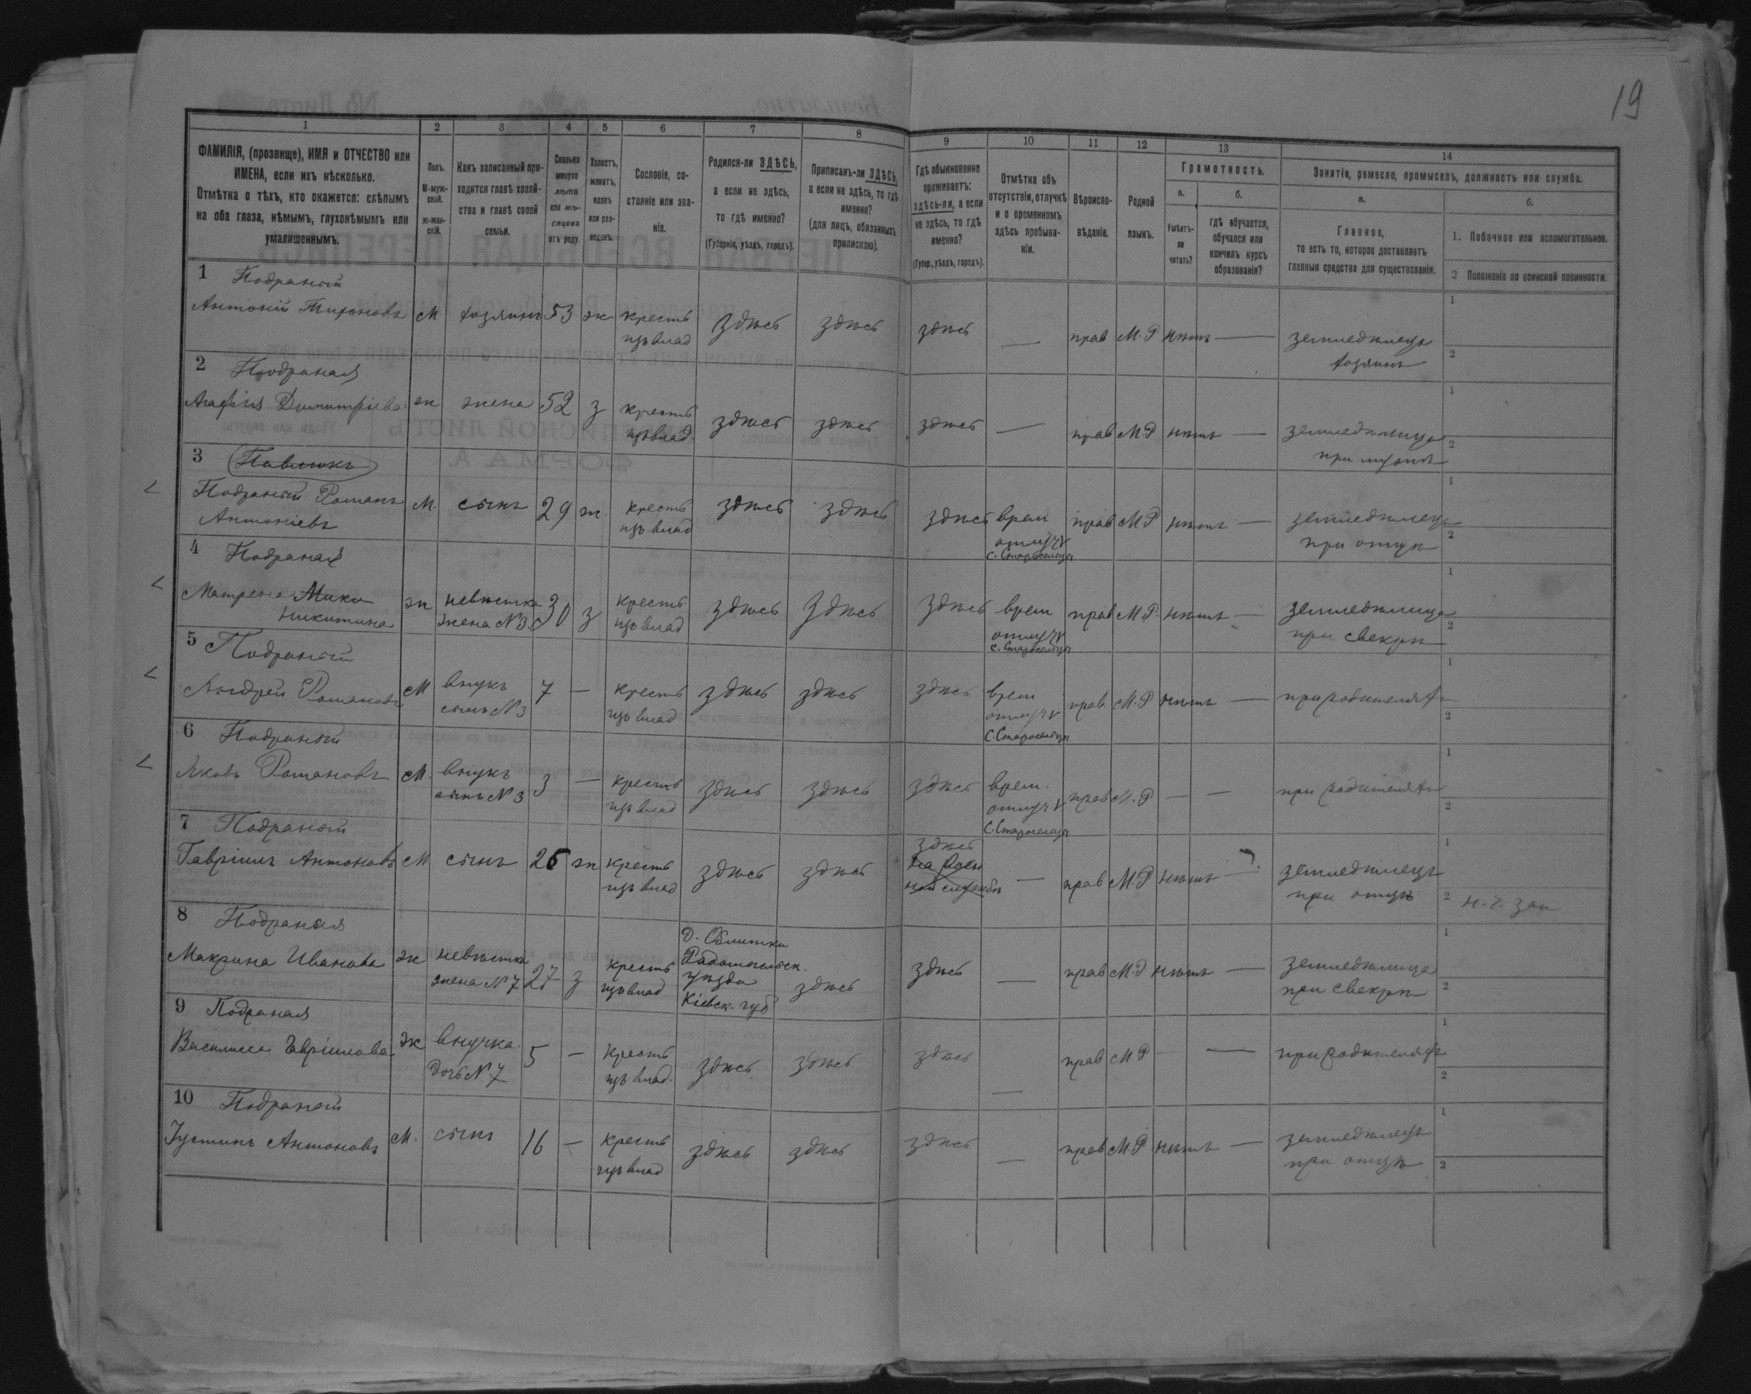 19
1 2 3 4 5 6 7 8 9 10 11 12 13 14
ФАМИЛІЯ, (прозвище), ИМЯ и ОТЧЕСТВО или
ИМЕНА, если ихъ нѣсколько.
Отмѣтка о тѣхъ, кто окажется: слѣпымъ
на оба глаза, нѣмымъ, глухонѣмымъ или
умалишеннымъ.
Полъ.
М-муж-
ской.
Ж-жен-
скій.
Какъ записанный при-
ходится главѣ хозяй-
ства и главѣ своей
семьи.
Сколько
минуло
лѣтъ
или мѣ-
сяцевъ
отъ роду.
Холостъ,
женатъ,
вдовъ
или раз-
веденъ.
Сословіе, со-
стояніе или зва-
ніе.
Родился-ли ЗДѢСЬ,
а если не здѣсь,
то гдѣ именно?
(Губернія, уѣздъ, городъ).
Приписанъ-ли ЗДѢСЬ,
а если не здѣсь, то гдѣ
именно?
(для лицъ, обязанныхъ
припискою).
Гдѣ обыкновенно
проживаетъ:
здѣсь-ли, а если
не здѣсь, то гдѣ
именно?
(Губер., уѣздъ, городъ).
Отмѣтка объ
отсутствіи, отлучкѣ
и о временномъ
здѣсь пребыва-
ніи.
Вѣроиспо-
вѣданіе.
Родной
языкъ.
Грамотность.
а.
Умѣетъ-
ли
читать?
б.
гдѣ обучается,
обучался или
кончилъ курсъ
образованія?
Занятія, ремесло, промыселъ, должность или служба.
а.
Главное,
то есть то, которое доставляетъ
главныя средства для существованія.
б.
1. Побочное или вспомогательное.
2 Положеніе по воинской повинности.
1 Подраный
Антоній Тихоновъ М хозяинъ 53 ж крестъ здѣсь здѣсь здѣсь — прав М.Р нѣтъ — земледѣлецъ
изъ влад
хозяинъ
2 Подраная
Агафія Димитріева ж жена 52 з крестъ здѣсь здѣсь здѣсь — прав М.Р нѣтъ — земледѣлица
изъ влад
при мужѣ
3 (Павлюкъ)
Подраный Романъ М. сынъ 29 ж. крестъ здѣсь здѣсь здѣсь врем прав М.Р нѣтъ — земледѣлецъ
Антоніевъ изъ влад
при отцѣ
4 Подраная
Матрена Мики ж невѣстка 30 з крестъ здѣсь здѣсь здѣсь врем прав М.Р. нѣтъ — земледѣлица
Никитина жена №3. изъ влад
при свекрѣ
5 Подраный
Андрей Романовъ М внукъ 7 — крестъ здѣсь здѣсь здѣсь врем прав М.Р нѣтъ — при родителяхъ
сынъ №3 изъ влад
6 Подраный
Яковъ Романовъ М. внукъ 3 — крестъ здѣсь здѣсь здѣсь врем. прав М.Р — — при родителяхъ
сынъ №3 изъ влад
7 Подраный
здѣсь
Гавріилъ Антоновъ М сынъ 26 ж крестъ здѣсь здѣсь — прав М.Р нѣтъ — земледѣлецъ
изъ влад
при отцѣ
8 Подраная
Макрина Иванова ж невѣстка 27 з крестъ
жена №7 изъ влад
Радомысльск.
уѣзда
Кіевск. губ
здѣсь здѣсь — прав М.Р нѣтъ — земледѣлица
при свекрѣ
9 Подраная
Василиса Гавріилова ж внучка 5 — крестъ здѣсь здѣсь здѣсь — прав М.Р — — при родителяхъ
дочь №7 изъ влад.
10 Подраный
Іустинъ Антоновъ М. сынъ 16 — крестъ здѣсь здѣсь здѣсь — прав М.Р. нѣтъ — земледѣлецъ
изъ влад
при отцѣ